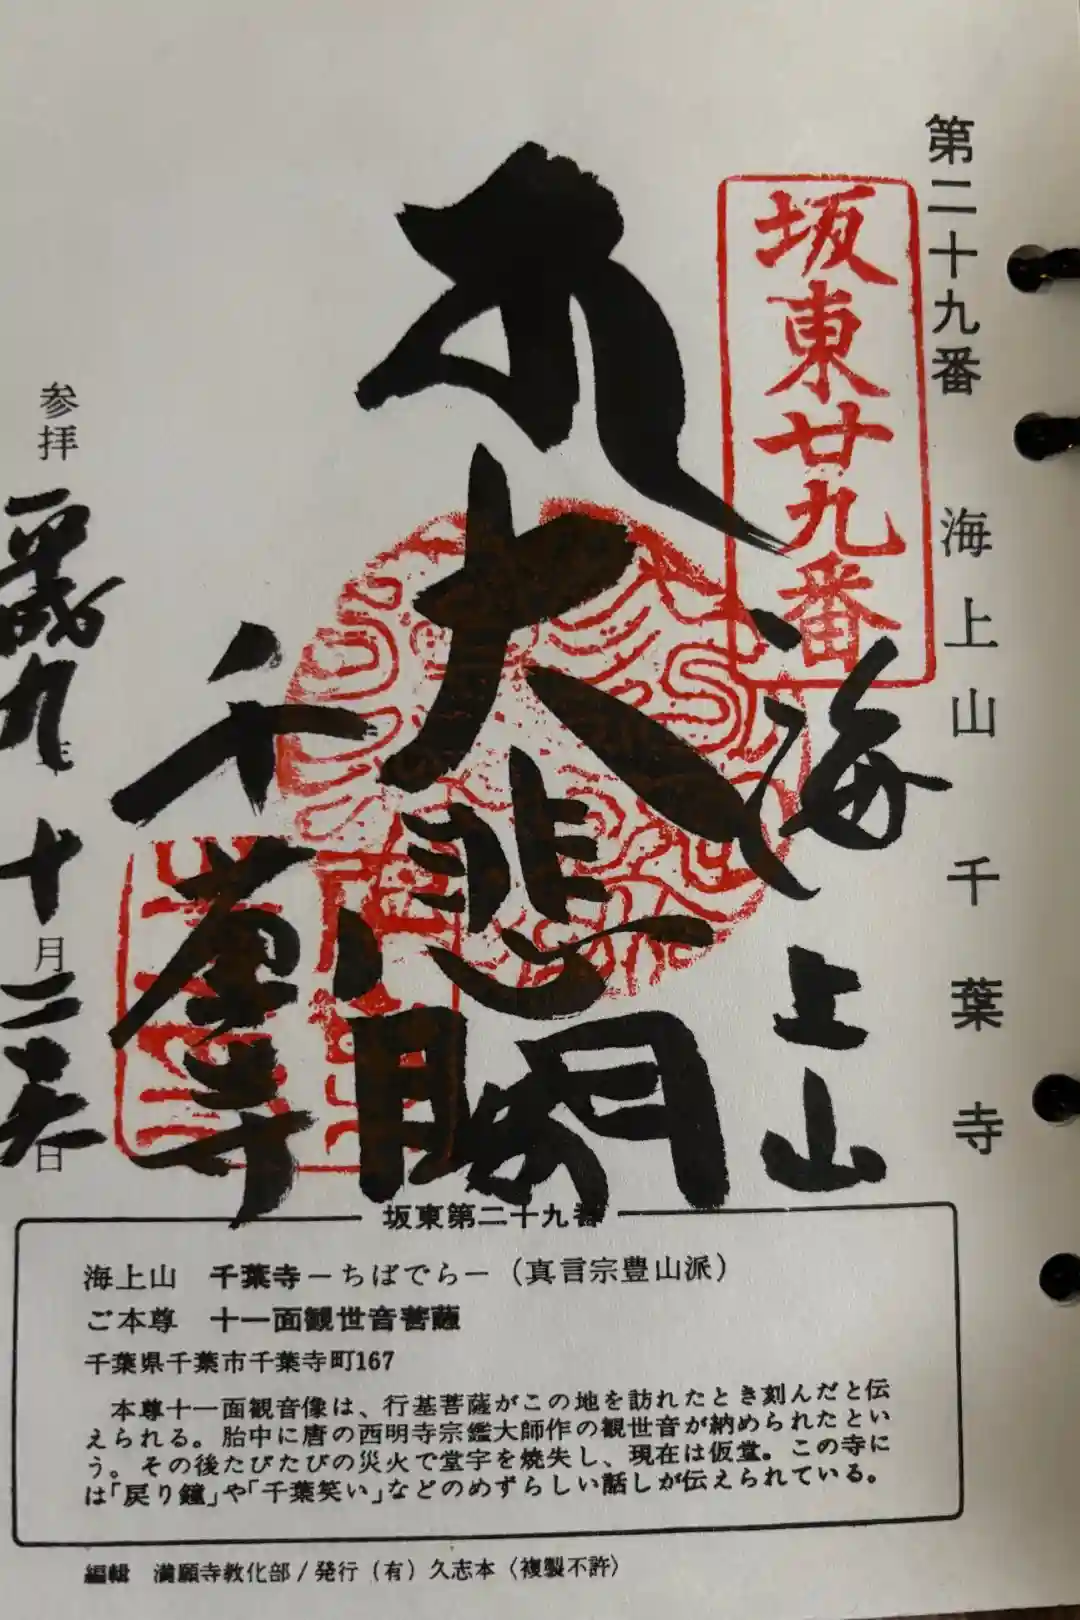 第二十九番 海上山 千葉寺
坂東廿九番
海上山
大悲閣
千葉寺
参拝
平成九年
十月二
日
坂東第二十九番
海上山 千葉寺－ちばでら－（真言宗豊山派）
ご本尊 十一面観世音菩薩
千葉県千葉市千葉寺町167
本尊十一面観音像は、行基菩薩がこの地を訪れたとき刻んだと伝
えられる。胎中に唐の西明寺宗鑑大師作の観世音が納められたとい
う。その後たびたびの災火で堂字を焼失し、現在は仮堂。この寺に
は「戻り鐘」や「千葉笑い」などのめずらしい話しが伝えられている。
編輯 満願寺教化部/発行（有）久志本（複製不許）